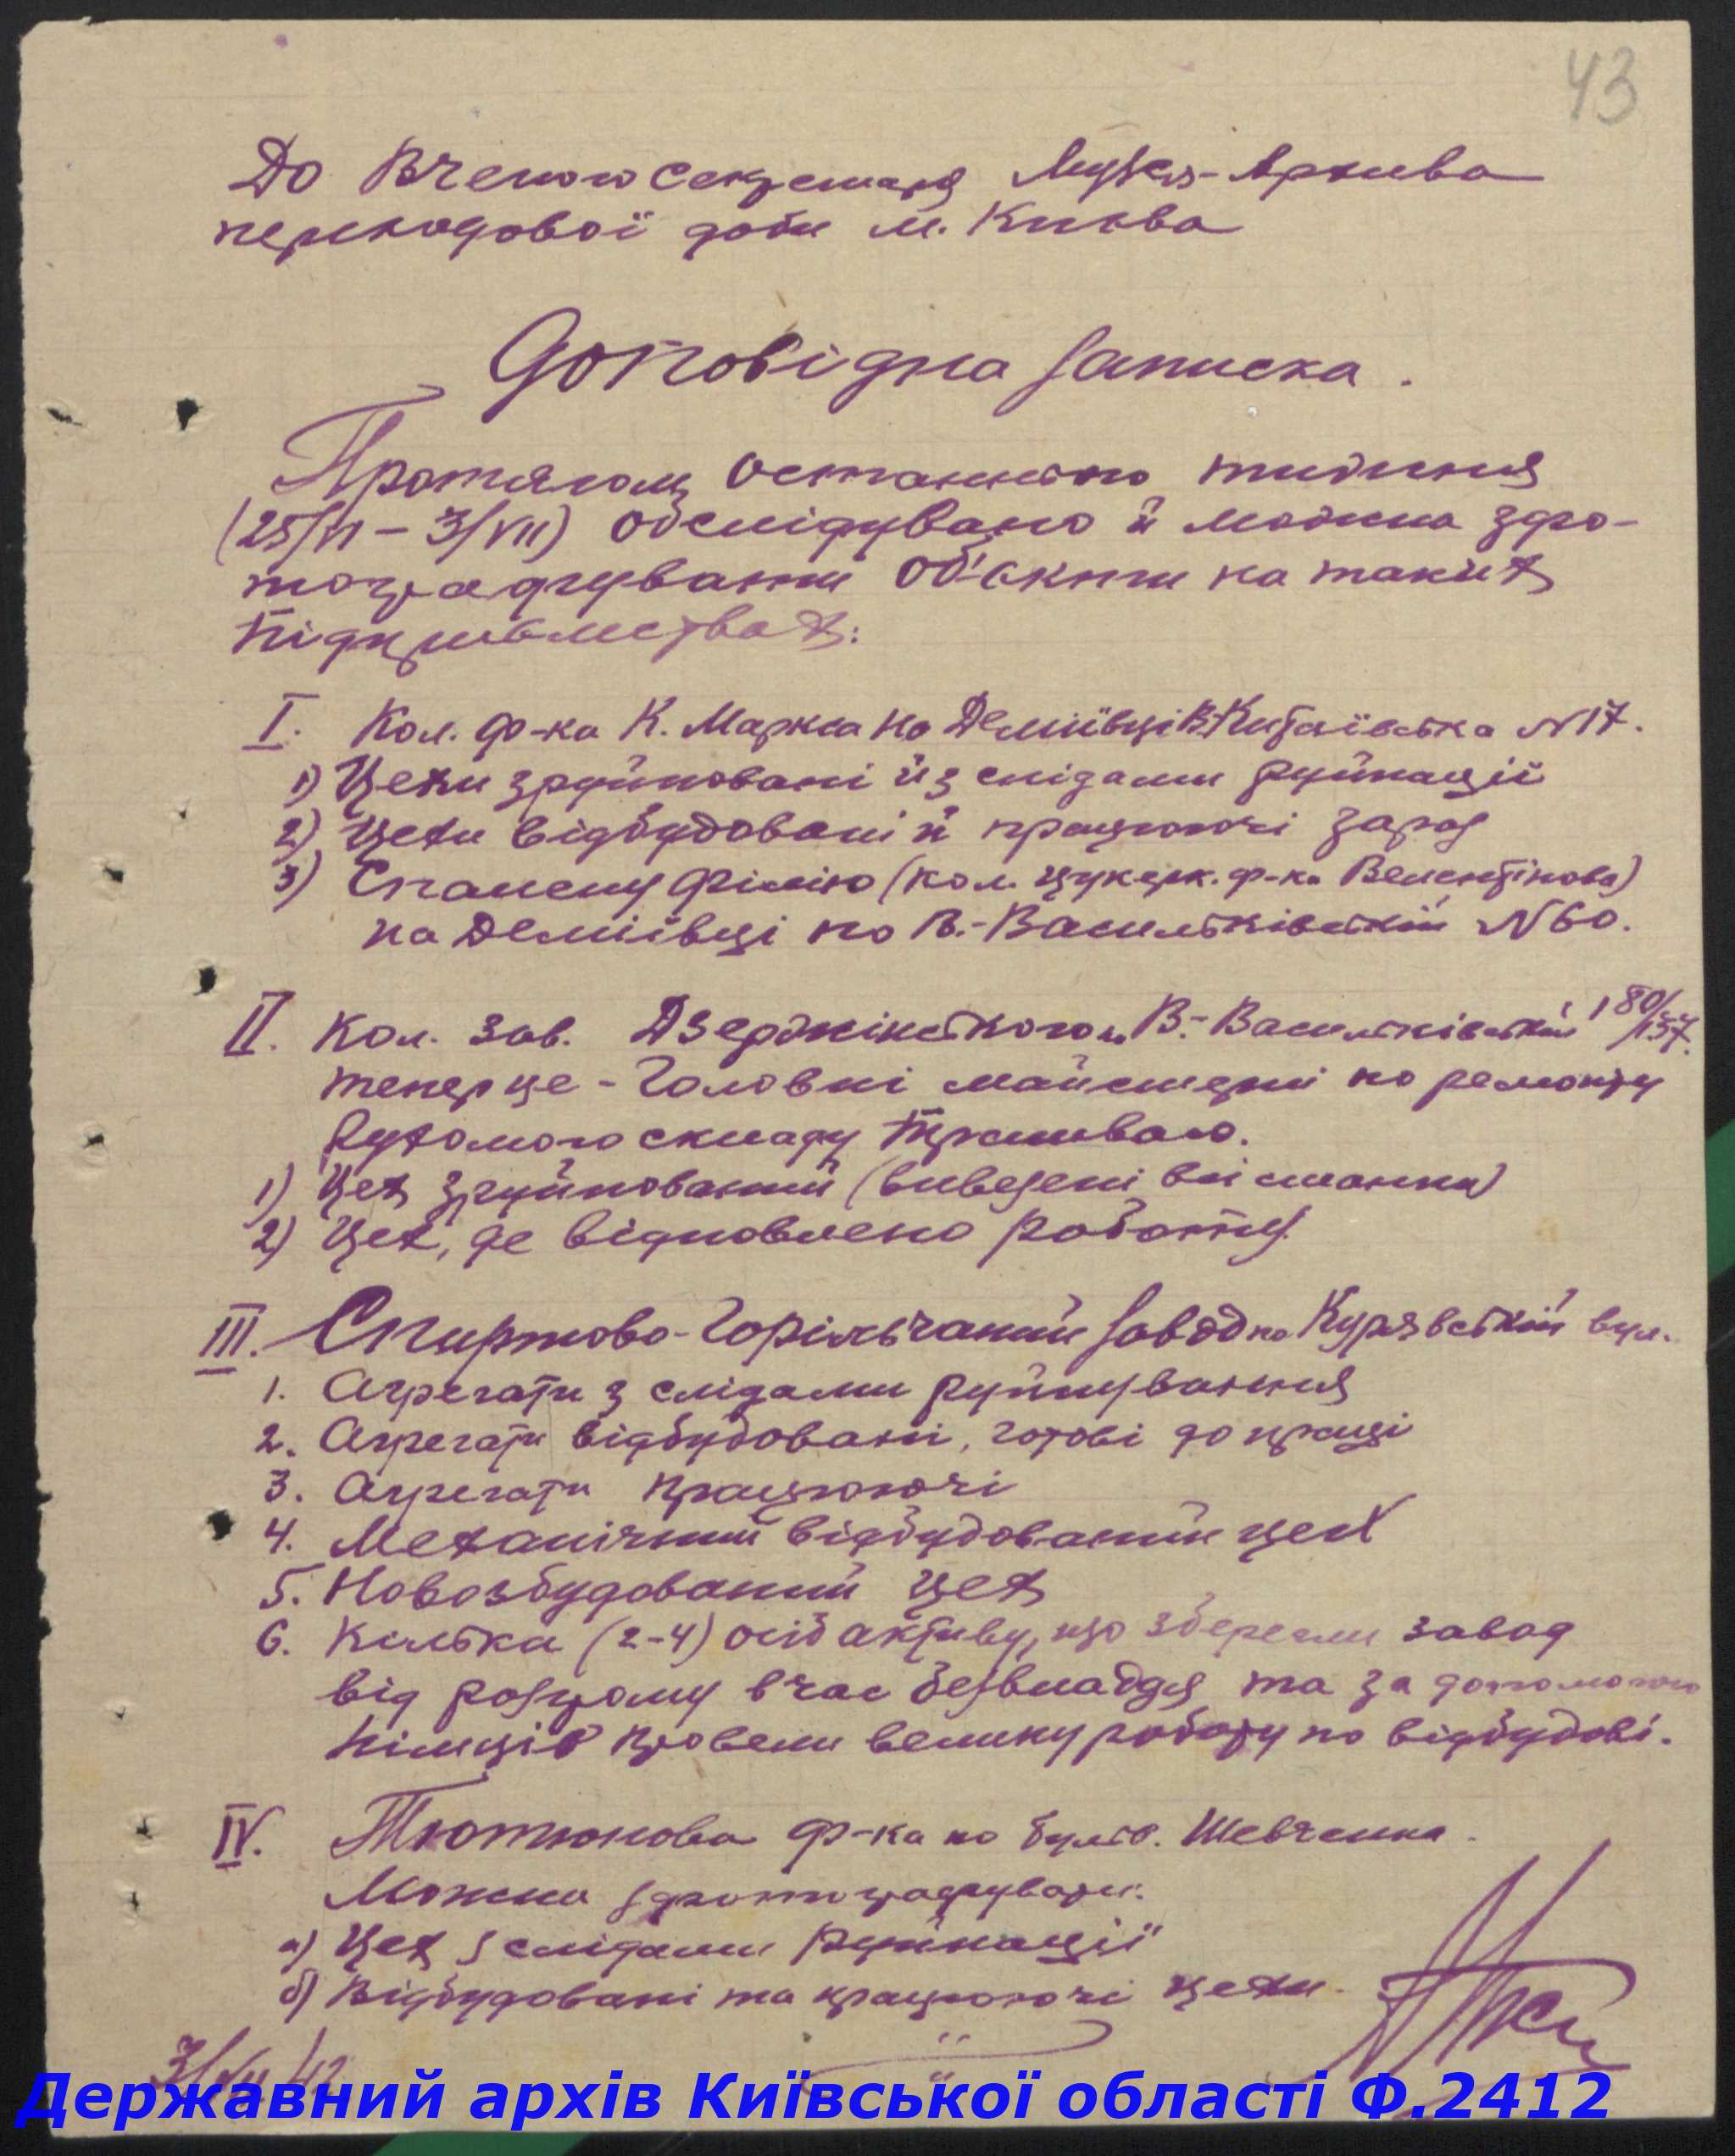 43
До Вченого Секретаря Музею-Архива
переходової доби м. Києва
Доповідна записка.
Протягом останнього тижня
(25/VI – 3/VII) обслідувано й можна зфо-
тографувати об'єкти на таких
підприємствах:
I. Кол. ф-ка К. Маркса на Деміївці В-Китаївська N 17.
1) Цехи зруйновані й з слідами руйнації
2) Цехи відбудовані й працюючі зараз
3) Спалену філію (кол. цукерк. ф-ка Валентінова)
на Деміївці по В.-Васильківській N 60.
II. Кол. зав. Дзержінського В.-Васильківській 180/157.
тепер це - Головні майстерні по ремонту
рухомого складу Трамваю.
1) Цех зруйнований (вивезені всі станки)
2) Цех, де відновлено роботу.
III. Спиртово-Горільчаний завод по Курявській вул.
1. Агрегати з слідами руйнування
2. Агрегати відбудовані, готові до праці
3. Агрегати працюючі
4. Механічний відбудований цех
5. Новозбудований цех
6. Кілька (2-4) осіб активу, що зберегли завод
від розгрому в час безвладдя та за допомогою
німців провели велику роботу по відбудові.
IV. Тютюнова ф-ка по бульв. Шевченка.
Можна зфотографувати:
а) Цех з слідами руйнації
б) Відбудовані та працюючі цехи.
3/VII 42
Державний архів Київської області Ф.2412